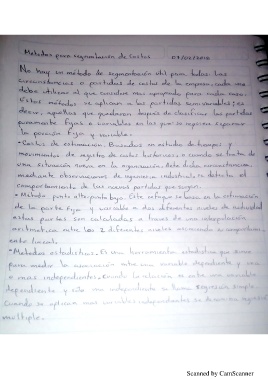 Métodos para segmentación de Costos 07/02/2018
No hay un método de segmentación útil para todas las
circunstancias o partidas de costos de la empresa, cada una
debe utilizar el que considere más apropiado para cada caso.
Estos métodos se aplican a las partidas semivariables; es
decir, aquellas que quedaron después de clasificar las partidas
puramente fijas o variables en las que se requiere separar
la porción fija y variable.
- Costos de estimación. Basados en estudios de tiempos y
movimientos de registro de costos históricos o cuando se trata de
una situación nueva en la organización
mediante observaciones de ingeniería industrial se detecta el
comportamiento de las nuevas partidas que surgen.
- Método punto alto-punto bajo. Este enfoque se basa en la estimación
de la parte fija y variable a dos diferentes niveles de actividad
estas partes son calculadas a través de una interpolación
aritmética entre los 2 diferentes niveles
comportamiento lineal.
- Métodos estadísticos. Es una herramienta estadística que sirve
para medir la asociación entre una variable dependiente y una
o más independientes. Cuando la relación es entre una variable
dependiente y sólo una independiente se llama Regresión simple.
Cuando se aplican más variables independientes se denomina regresión
múltiple.
Scanned by CamScanner